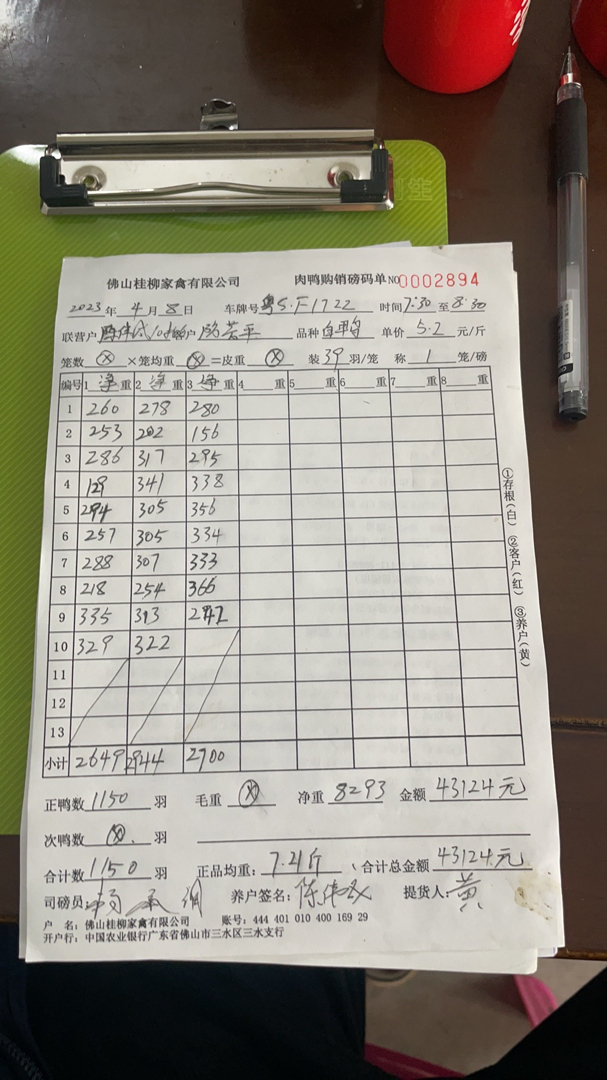 佛山桂柳家禽有限公司 肉鸭购销磅码单 NO 0002894
2023年 4月 8日 车牌号 粤S.F1722 时间 7:30 至 8:30
联营户 品种 白鸭 单价 5.2 元/斤
笼数 ⊗ ×笼均重 ⊗ =皮重 ⊗ 装 39 羽/笼 称 1 笼/磅
编号 1 净 重 2 净 重 3 净 重 4 重 5 重 6 重 7 重 8 重
1 260 278 280
2 253 202 156
3 286 317 295
4 129 341 338
5 294 305 356
6 257 305 334
7 288 307 333
8 218 254 366
9 335 313 242
10 329 322
11
12
13
小计 2649 2944 2700
①存根(白) ②客户(红) ③养户(黄)
正鸭数 1150 羽 毛重 ⊗ 净重 8293 金额 43124元
次鸭数 ⊗ 羽
合计数 1150 羽 正品均重: 7.21斤 、合计总金额 43124元
司磅员: 养户签名: 提货人: 黄
户 名: 佛山桂柳家禽有限公司 账号: 444 401 010 400 169 29
开户行: 中国农业银行广东省佛山市三水区三水支行